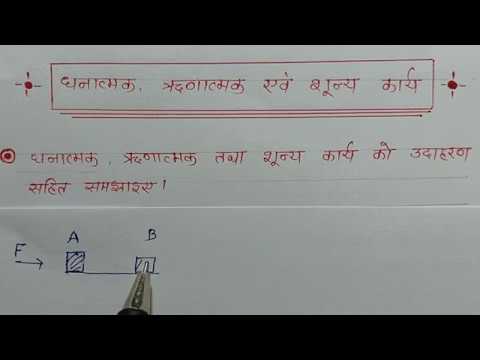 धनात्मक, ऋणात्मक एवं शून्य कार्य
धनात्मक, ऋणात्मक तथा शून्य कार्य को उदाहरण
सहित समझाइए।
A B
F